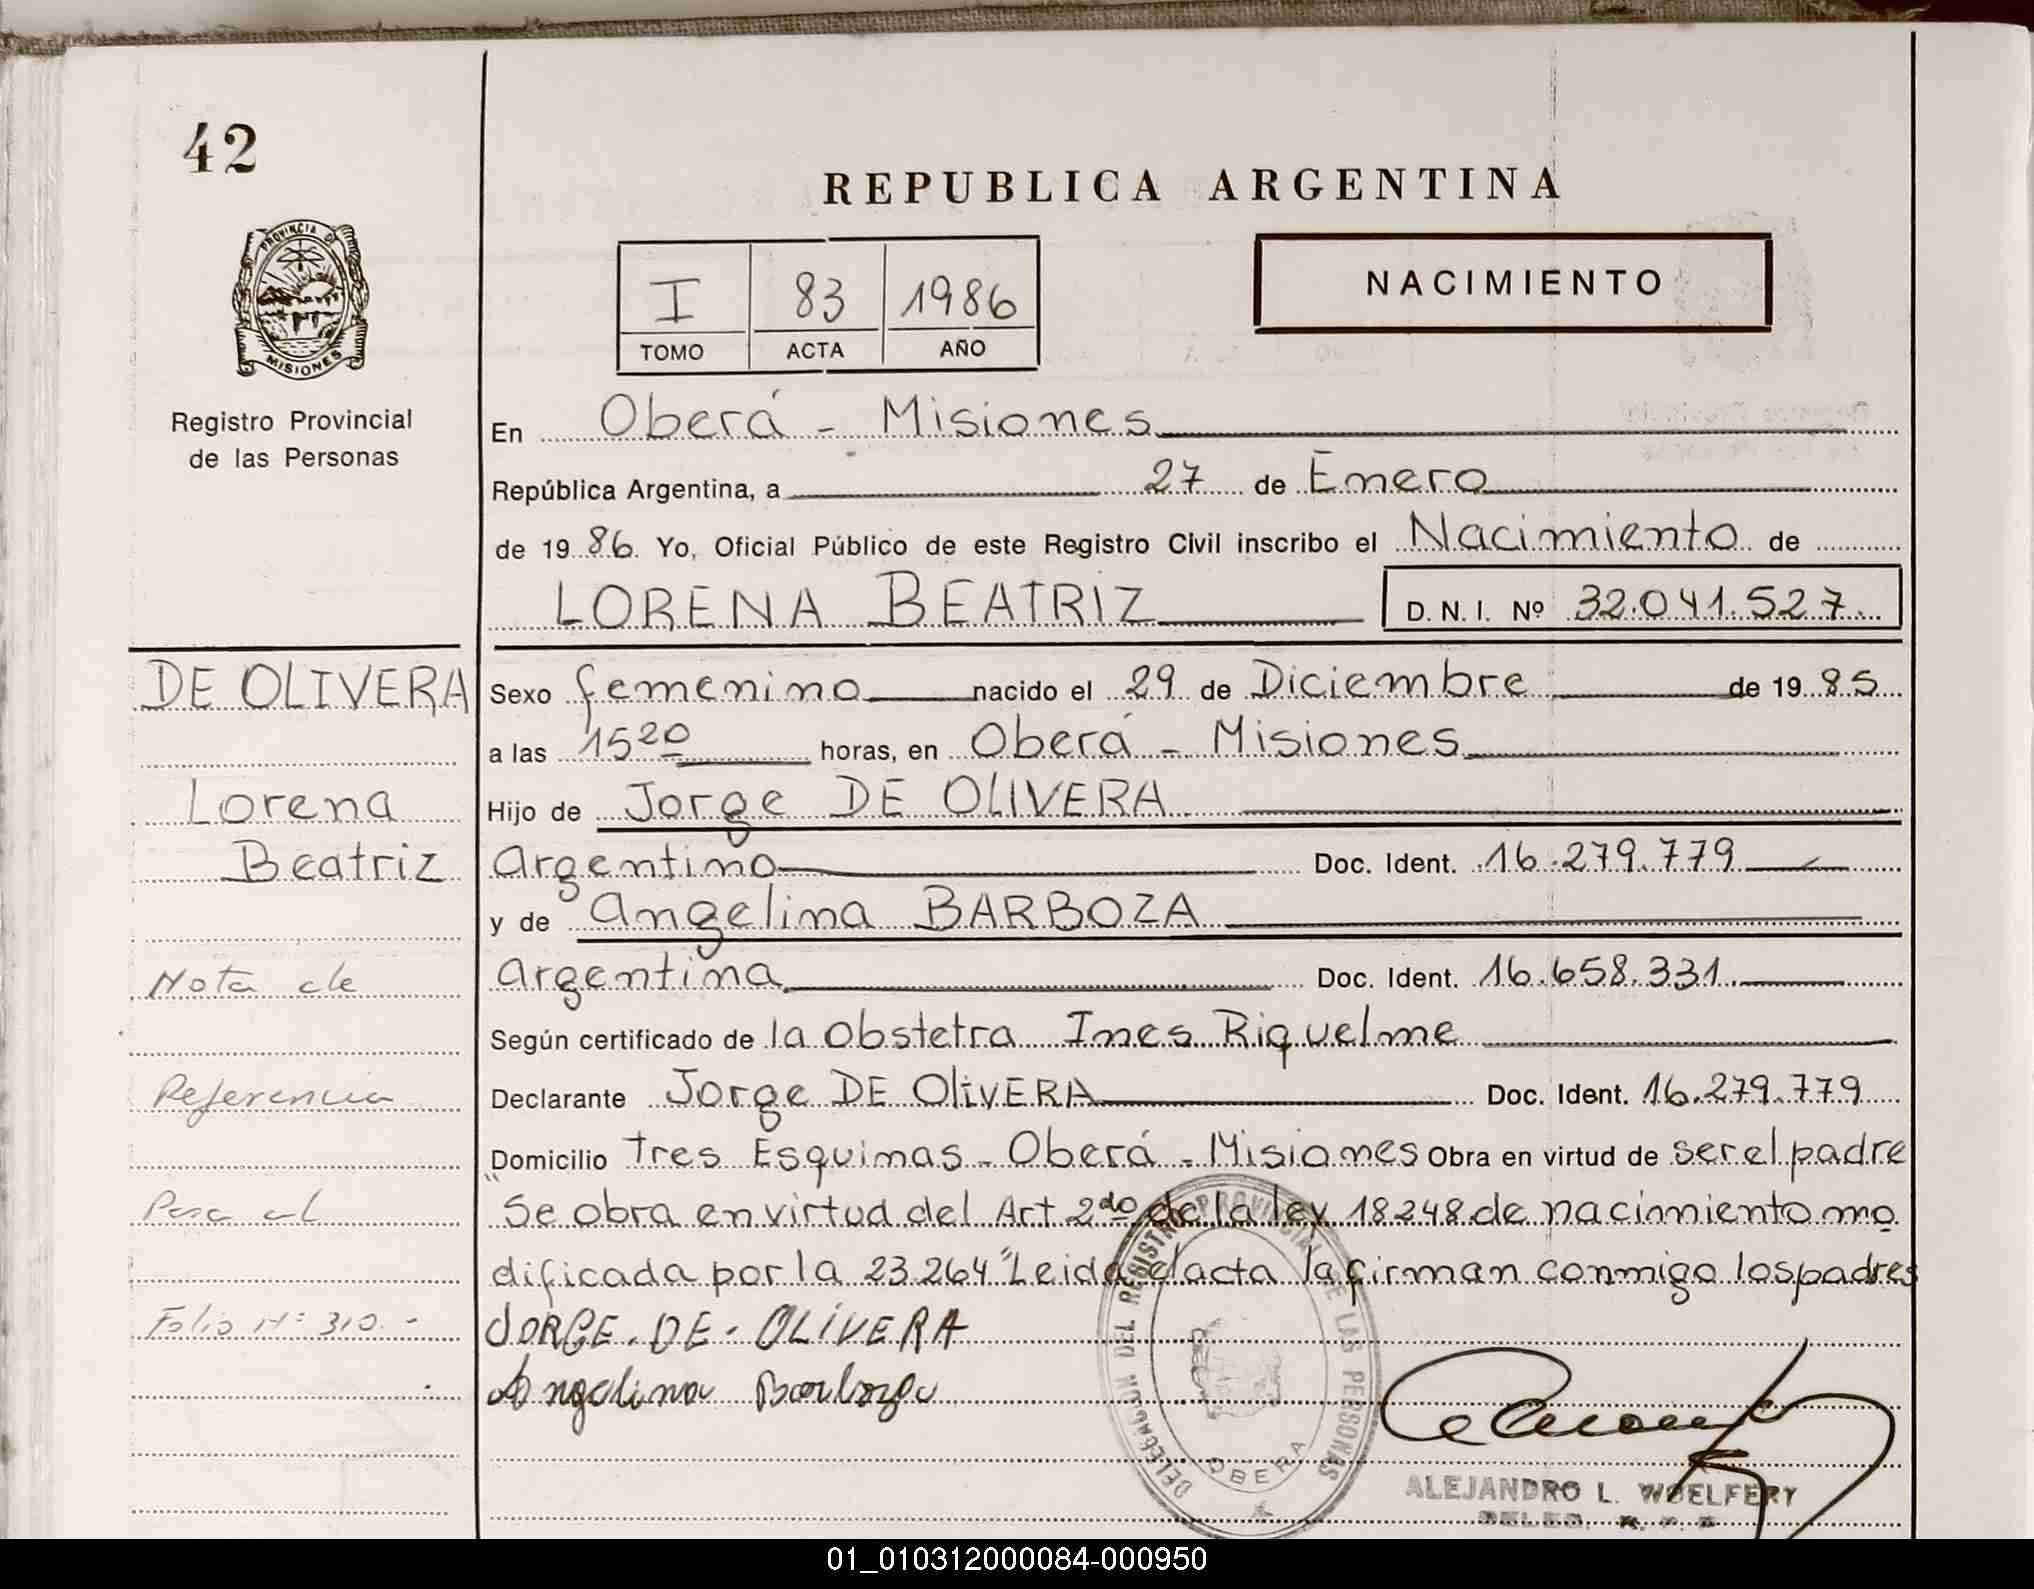 42
REPUBLICA ARGENTINA
PROVINCIA DE
MISIONES
Registro Provincial
de las Personas
I 83 1986
TOMO ACTA AÑO
NACIMIENTO
En Oberá - Misiones
República Argentina, a 27 de Enero
de 19 86. Yo, Oficial Público de este Registro Civil inscribo el Nacimiento de
LORENA BEATRIZ D. N. I. Nº 32.041.527.
DE OLIVERA
Lorena
Beatriz
Nota de
Referencia
Pasa al
Folio Nº 310.-
Sexo femenino nacido el 29 de Diciembre de 19 85
a las 15 20 horas, en Oberá - Misiones
Hijo de Jorge DE OLIVERA
Argentino Doc. Ident. 16.279.779
y de Angelina BARBOZA
Argentina Doc. Ident. 16.658.331
Según certificado de la Obstetra Ines Riquelme
Declarante Jorge DE OliVERA Doc. Ident. 16.279.779
Domicilio Tres Esquinas - Oberá - Misiones Obra en virtud de ser el padre
"Se obra en virtud del Art 2do de la ley 18248 de nacimiento mo
dificada por la 23.264" Leida el acta la firman conmigo los padres
JORGE. DE. OLIVERA
Angelina Barboza
DELEGACION DEL REGISTRO PROVINCIAL DE LAS PERSONAS
OBERA
ALEJANDRO L. WOELFERT
01_010312000084-000950